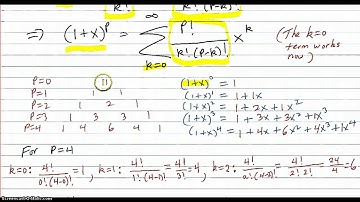 k! k!(p-k)!
⇒ (1+x)^p = ∑_{k=0}^{∞} p!/(k!·(p-k)!) x^k (The k=0 term works now)
P=0 1 (1+x)^0 = 1
P=1 1 1 (1+x)^1 = 1+1x
P=2 1 2 1 (1+x)^2 = 1+2x+1x^2
P=3 1 3 3 1 (1+x)^3 = 1+3x+3x^2+1x^3
P=4 1 4 6 4 1 (1+x)^4 = 1+4x+6x^2+4x^3+1x^4
For P=4
k=0: 4!/(0!·(4-0)!) = 1, k=1: 4!/(1!·(4-1)!) = 4!/3! = 4, k=2: 4!/(2!(4-2)!) = 4!/(2!2!) = 24/4 = 6